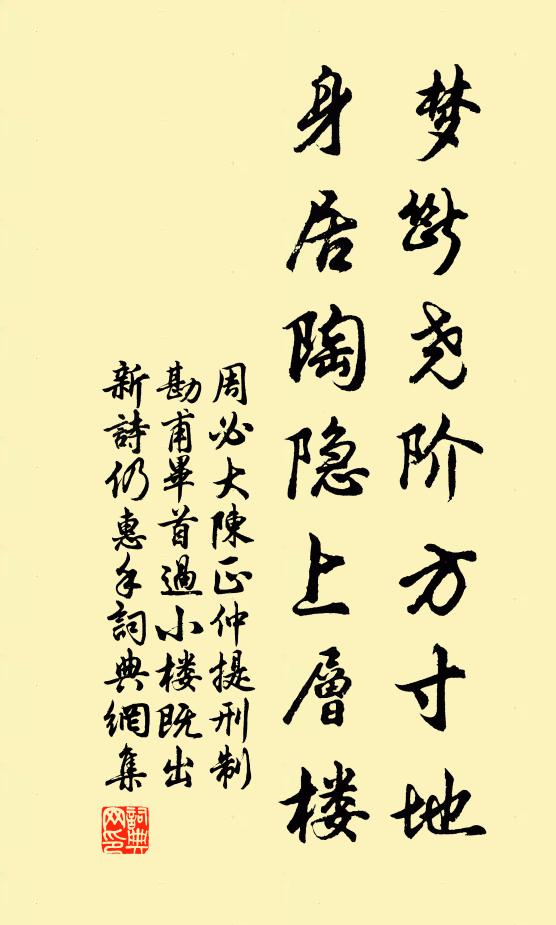 梦断尧阶方寸地
身居陶隐上层楼
周必大陳正仲提刑制
勘甫畢首過小楼既出
新詩仍惠手詞典網集
詞典网印